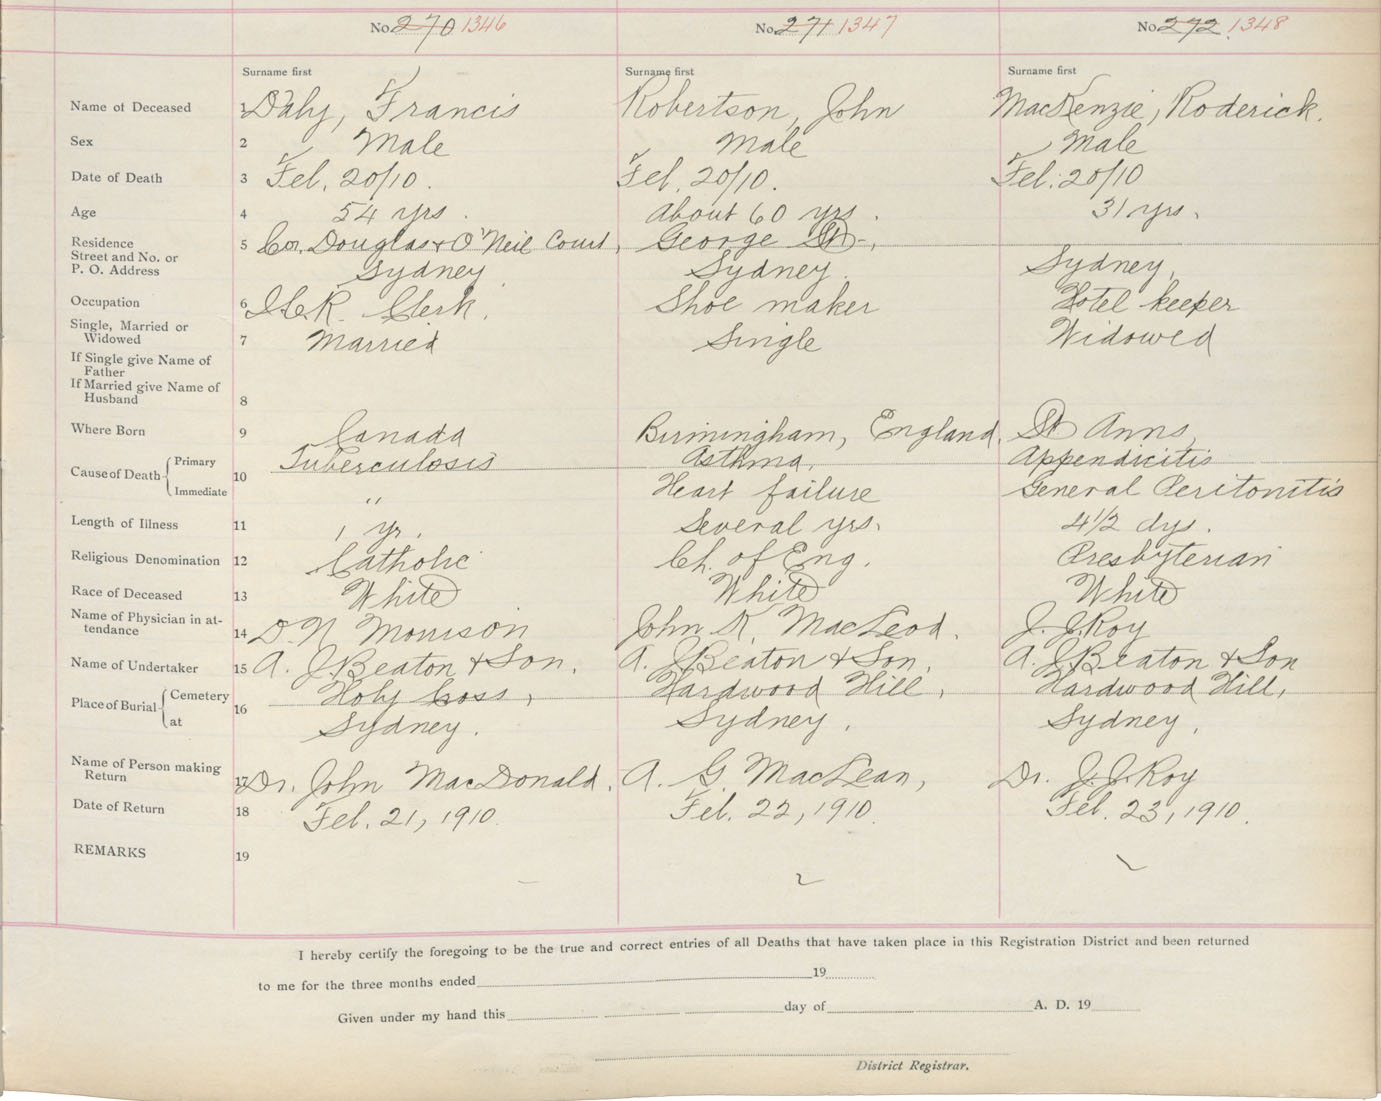 No. 270 1346 No. 271 1347 No. 272 1348
Surname first Surname first Surname first
Name of Deceased 1 Daly, Francis Robertson, John MacKenzie, Roderick.
Sex 2 Male Male Male
Date of Death 3 Feb. 20/10. Feb. 20/10. Feb. 20/10
Age 4 54 yrs. About 60 yrs. 31 yrs.
Residence 5 Cor. Douglas & O'Neil Court, George St.,
Street and No. or
P. O. Address Sydney Sydney. Sydney,
Occupation 6 I.C.R. Clerk. Shoe maker Hotel keeper
Single, Married or
Widowed 7 Married Single Widowed
If Single give Name of
Father
If Married give Name of
Husband 8
Where Born 9 Canada Birmingham, England. St Anns,
Cause of Death Primary 10 Tuberculosis Asthma, Appendicitis
Immediate " Heart failure General Peritonitis
Length of Illness 11 1 yr. Several yrs. 4 1/2 dys.
Religious Denomination 12 Catholic Ch. of Eng. Presbyterian
Race of Deceased 13 White White White
Name of Physician in at-
tendance 14 D. N Morrison John K. MacLeod. J. J. Roy
Name of Undertaker 15 A. J. Beaton & Son. A. J. Beaton & Son. A. J. Beaton & Son
Place of Burial Cemetery 16 Holy Cross, Hardwood Hill, Hardwood Hill,
at Sydney. Sydney. Sydney.
Name of Person making
Return 17 Dr. John MacDonald. A. G. MacLean, Dr. J. J. Roy
Date of Return 18 Feb. 21, 1910. Feb. 22, 1910. Feb. 23, 1910.
REMARKS 19
I hereby certify the foregoing to be the true and correct entries of all Deaths that have taken place in this Registration District and been returned
to me for the three months ended 19
Given under my hand this day of A. D. 19
District Registrar.